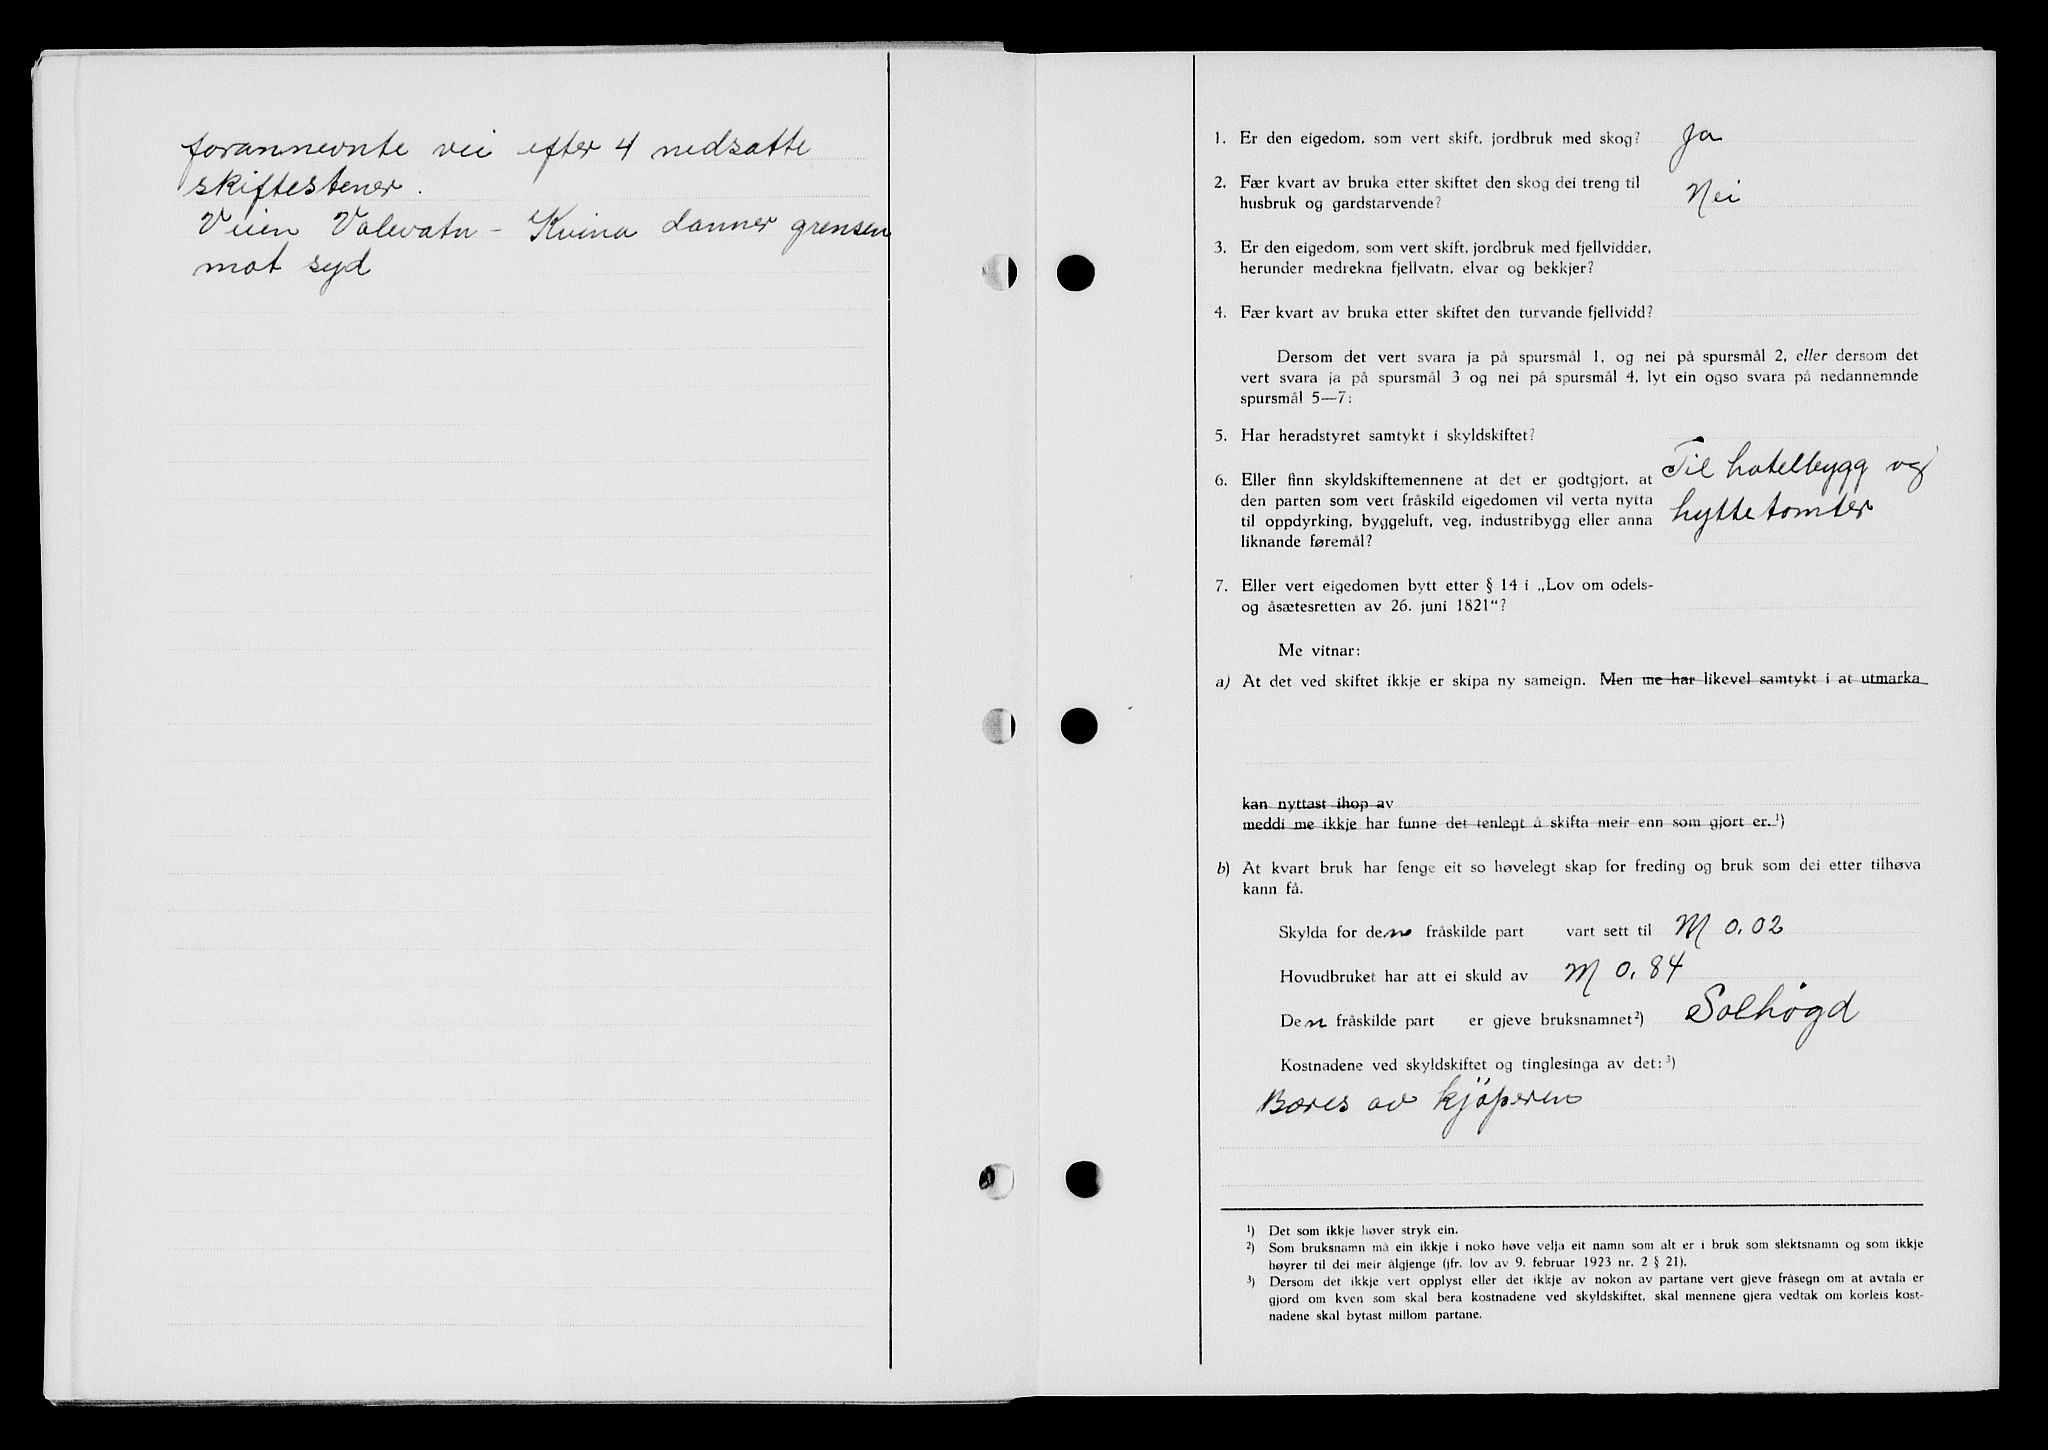 forannevnte vei efter 4 nedsatte
skiftestener.
Veien Valevatn - Kvina danner grensen
mot syd
1. Er den eigedom, som vert skift, jordbruk med skog? Ja
2. Fær kvart av bruka etter skiftet den skog dei treng til
husbruk og gardstarvende? Nei
3. Er den eigedom, som vert skift, jordbruk med fjellvidder,
herunder medrekna fjellvatn, elvar og bekkjer?
4. Fær kvart av bruka etter skiftet den turvande fjellvidd?
Dersom det vert svara ja på spursmål 1, og nei på spursmål 2, eller dersom det
vert svara ja på spursmål 3 og nei på spursmål 4, lyt ein ogso svara på nedannemnde
spursmål 5—7:
5. Har heradstyret samtykt i skyldskiftet?
6. Eller finn skyldskiftemennene at det er godtgjort, at Til hotelbygg og
den parten som vert fråskild eigedomen vil verta nytta
til oppdyrking, byggeluft, veg, industribygg eller anna hyttetomter
liknande føremål?
7. Eller vert eigedomen bytt etter § 14 i „Lov om odels-
og åsætesretten av 26. juni 1821“?
Me vitnar:
a) At det ved skiftet ikkje er skipa ny sameign. Men me har likevel samtykt i at utmarka
kan nyttast ihop av
meddi me ikkje har funne det tenlegt å skifta meir enn som gjort er.¹)
b) At kvart bruk har fenge eit so høvelegt skap for freding og bruk som dei etter tilhøva
kann få.
Skylda for den fråskilde part vart sett til M 0,02
Hovudbruket har att ei skuld av M 0,84
Den fråskilde part er gjeve bruksnamnet²) Solhögd
Kostnadene ved skyldskiftet og tinglesinga av det:³)
Bæres av kjöperen
¹) Det som ikkje høver stryk ein.
²) Som bruksnamn må ein ikkje i noko høve velja eit namn som alt er i bruk som slektsnamn og som ikkje
høyrer til dei meir ålgjenge (jfr. lov av 9. februar 1923 nr. 2 § 21).
³) Dersom det ikkje vert opplyst eller det ikkje av nokon av partane vert gjeve fråsegn om at avtala er
gjord om kven som skal bera kostnadene ved skyldskiftet, skal mennene gjera vedtak om korleis kost-
nadene skal bytast millom partane.